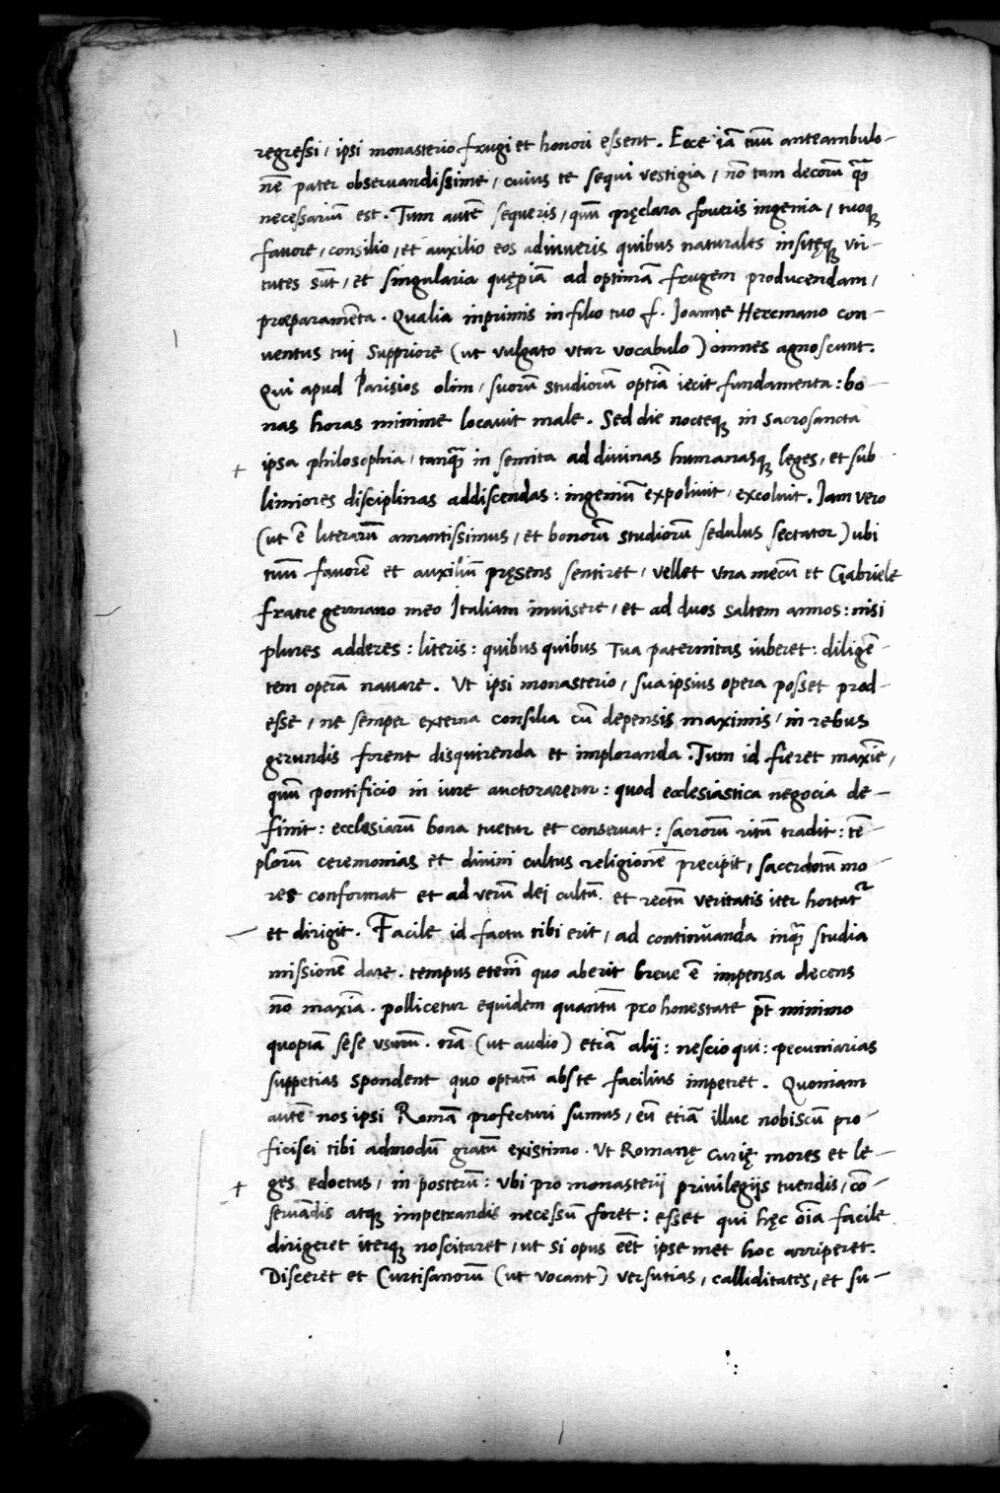 regressi, ipsi monasterio frugi et honori essent. Ecce iã tuũ anteambulo-
nẽ pater observandissime, cuius te sequi vestigia, nõ tam decorũ quã
necessariũ est. Tum autẽ sequeris, quũ pręclara foveris ingenia, tuoq
favore, consilio, et auxilio eos adiuveris quibus naturales insitęq vir-
tutes sũt, et singularia quępiã ad optimã frugem producendam,
præparamẽta. Qualia inprimis in filio tuo f. Joanne Hercmano con-
ventus tui Suppriore (ut vulgato utar vocabulo) omnes agnoscunt.
Qui apud Parisios olim, suorũ studiorũ optĩa iecit fundamenta: bo-
nas horas minime locavit male. Sed die nocteq in sacrosancta
ipsa philosophia, tanquã in semita ad divinas humanasq leges, et sub
limiores disciplinas addiscendas: ingeniũ expolivit, excoluit. Jam vero
(ut ẽ literarũ amantissimus, et bonorũ studiorũ sedulus sectator) ubi
tuũ favorẽ et auxiliũ pręsens sentiret, vellet una mecũ et Gabriele
fratre germano meo Italiam invisere, et ad duos saltem annos: nisi
plures adderes: literis: quibus quibus Tua paternitas iuberet: diligẽ-
tem operã navare. Ut ipsi monasterio, sua ipsius opera posset prod-
esse, ne semper externa consilia cũ depensis maximis, in rebus
gerundis forent disquirenda et imploranda. Tum id fieret maxĩe,
quũ pontificio in iure auctoraretur: quod ecclesiastica negocia de-
finit: ecclesiarũ bona tuetur et conservat: sacrorũ ritũ tradit: tẽ-
plorũ ceremonias et divini cultus religionẽ precipit, sacerdotũ mo-
res conformat et ad verũ dei cultũ et rectũ veritatis iter hortat
et dirigit. Facile id factu tibi erit, ad continuanda inquã studia
missionẽ dare. tempus etenĩ quo aberit breve ẽ impensa decens
nõ maxĩa. pollicetur equidem quantũ pro honestate põt minimo
quopiã sese usurũ. nã (ut audio) etiã alij: nescio qui: pecuniarias
suppetias spondent quo optatũ abs te facilius impetret. Quoniam
autẽ nos ipsi Romã profecturi sumus, eũ etiã illuc nobiscũ pro-
ficisci tibi admodũ gratũ existimo. Ut Romanę curię mores et le-
ges edoctus, in posterũ: ubi pro monasterij privilegijs tuendis, cõ-
servãdis atq impetrandis necessũ foret: esset qui hęc oĩa facile
dirigeret iterq noscitaret, ut si opus eẽt ipse met hoc arriperet.
Disceret et Curtisanorũ (ut vocant) versutias, calliditates, et su-